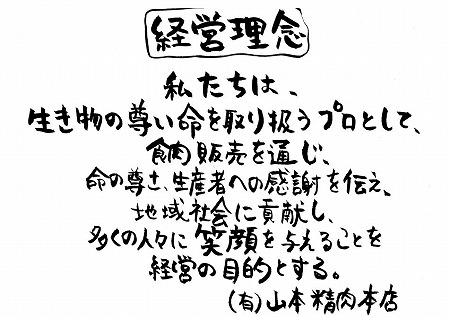 経営理念
私たちは、
生き物の尊い命を取り扱うプロとして、
食肉販売を通じ、
命の尊さ、生産者への感謝を伝え、
地域社会に貢献し、
多くの人々に笑顔を与えることを
経営の目的とする。
(有)山本精肉本店